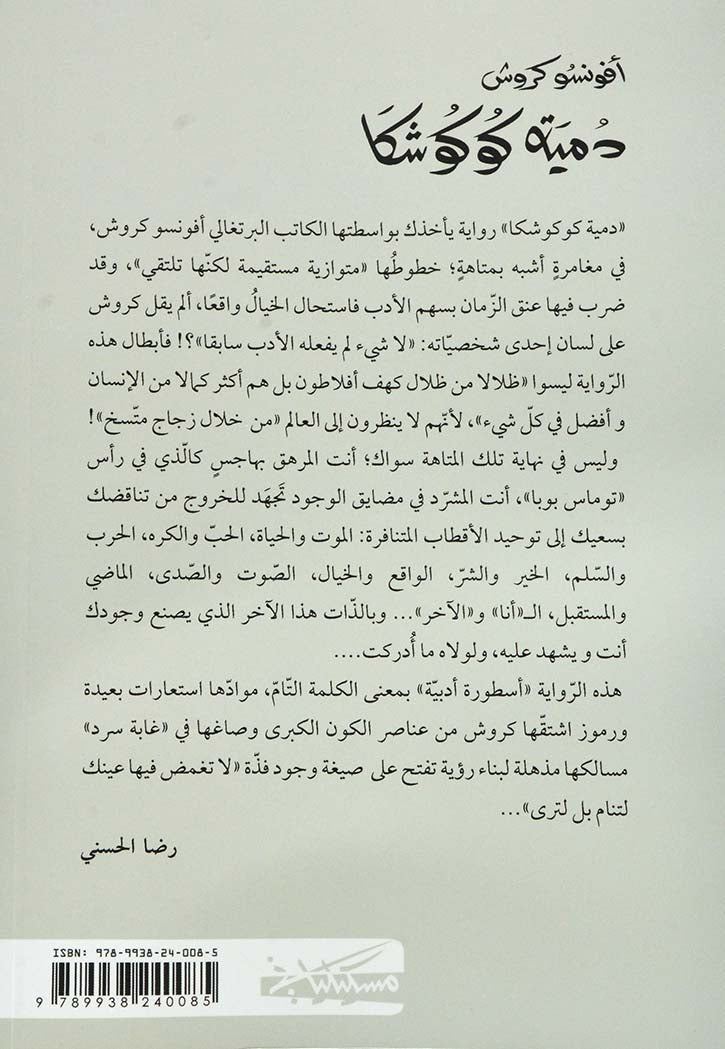 أفونسو كروش
دُميَة كُوكُوشكَا
«دمية كوكوشكا» رواية يأخذك بواسطتها الكاتب البرتغالي أفونسو كروش،
في مغامرةٍ أشبه بمتاهةٍ؛ خطوطُها «متوازية مستقيمة لكنّها تلتقي»، وقد
ضرب فيها عنق الزّمان بسهم الأدب فاستحال الخيالُ واقعًا، ألم يقل كروش
على لسان إحدى شخصيّاته: «لا شيء لم يفعله الأدب سابقا»؟! فأبطال هذه
الرّواية ليسوا «ظلالا من ظلال كهف أفلاطون بل هم أكثر كمالا من الإنسان
وأفضل في كلّ شيء»، لأنّهم لا ينظرون إلى العالم «من خلال زجاج متّسخ»!
وليس في نهاية تلك المتاهة سواك؛ أنت المرهق بهاجسٍ كالّذي في رأس
«توماس بوبا»، أنت المشرّد في مضايق الوجود تَجهَد للخروج من تناقضك
بسعيك إلى توحيد الأقطاب المتنافرة: الموت والحياة، الحبّ والكره، الحرب
والسّلم، الخير والشرّ، الواقع والخيال، الصّوت والصّدى، الماضي
والمستقبل، الـ«أنا» و«الآخر»... وبالذّات هذا الآخر الذي يصنع وجودك
أنت ويشهد عليه، ولولاه ما أُدركت....
هذه الرّواية «أسطورة أدبيّة» بمعنى الكلمة التّامّ، موادّها استعارات بعيدة
ورموز اشتقّها كروش من عناصر الكون الكبرى وصاغها في «غابة سرد»
مسالكها مذهلة لبناء رؤية تفتح على صيغة وجود فذّة «لا تغمض فيها عينك
لتنام بل لترى»...
رضا الحسني
ISBN: 978-9938-24-008-5
9 789938 240085